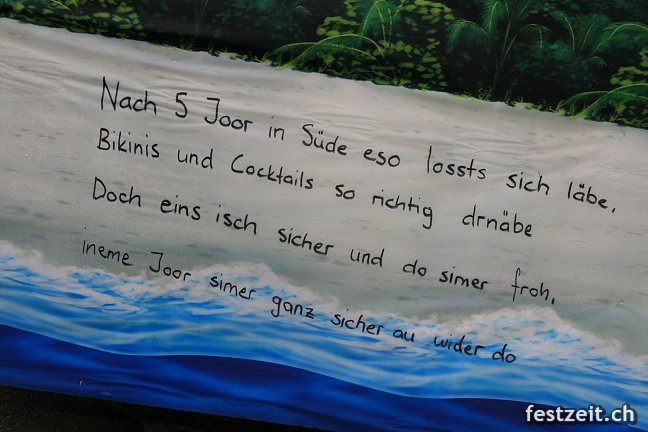 Nach 5 Joor in Süde eso lossts sich läbe,
Bikinis und Cocktails so richtig drnäbe
Doch eins isch sicher und do simer froh,
ineme Joor simer ganz sicher au wider do
festzeit.ch